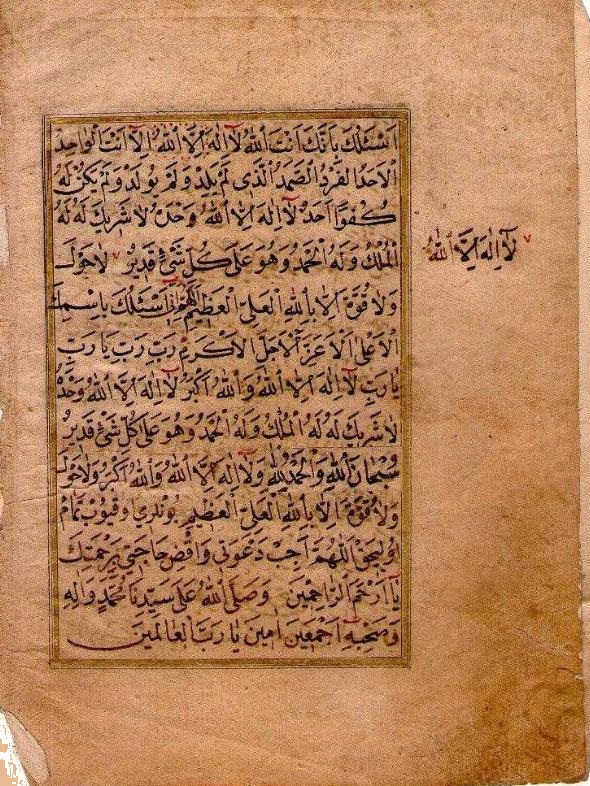 اَسْئَلُكَ بِاَنَّكَ اَنْتَ اللهُ لَا اِلٰهَ اِلَّا اللهُ اِلَّا اَنْتَ الْوَاحِدُ
الْاَحَدُ الْفَرْدُ الصَّمَدُ الَّذِى لَمْ يَلِدْ وَلَمْ يُولَدْ وَلَمْ يَكُنْ لَهُ
كُفُوًا اَحَدٌ لَا اِلٰهَ اِلَّا اللهُ وَحْدَهُ لَا شَرِيكَ لَهُ لَهُ
الْمُلْكُ وَلَهُ الْحَمْدُ وَهُوَ عَلَى كُلِّ شَىْءٍ قَدِيرٌ لَا حَوْلَ
لَا اِلٰهَ اِلَّا اللهُ
وَلَا قُوَّةَ اِلَّا بِاللهِ الْعَلِىِّ الْعَظِيمِ اَللّٰهُمَّ اِنِّى اَسْئَلُكَ بِاسْمِكَ
الْاَعْلَى الْاَعَزِّ الْاَجَلِّ الْاَكْرَمِ رَبِّ رَبِّ يَا رَبِّ
يَا رَبِّ لَا اِلٰهَ اِلَّا اللهُ وَاللهُ اَكْبَرُ لَا اِلٰهَ اِلَّا اللهُ وَحْدَهُ
لَا شَرِيكَ لَهُ لَهُ الْمُلْكُ وَلَهُ الْحَمْدُ وَهُوَ عَلَى كُلِّ شَىْءٍ قَدِيرٌ
سُبْحَانَ اللهِ وَالْحَمْدُ لِلّٰهِ وَلَا اِلٰهَ اِلَّا اللهُ وَاللهُ اَكْبَرُ وَلَا حَوْلَ
وَلَا قُوَّةَ اِلَّا بِاللهِ الْعَلِىِّ الْعَظِيمِ بونلرى اوقيوب تمام
اولىجق اَللّٰهُمَّ اَجِبْ دَعْوَتِى وَاقْضِ حَاجَتِى بِرَحْمَتِكَ
يَا اَرْحَمَ الرَّاحِمِينَ وَصَلَّى اللهُ عَلَى سَيِّدِنَا مُحَمَّدٍ وَاٰلِهِ
وَصَحْبِهِ اَجْمَعِينَ اٰمِينَ يَا رَبَّ الْعَالَمِينَ